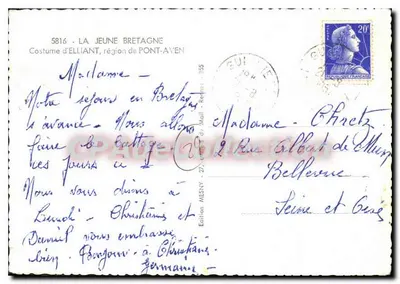 5816 - LA JEUNE BRETAGNE
Costume d'ELLIANT, région de PONT-AVEN
20F
Madame -
Notre sejour en Bretagne
s'avance - Nous allons
faire le
ces jours ci
Nous vous dirons à
Lundi - Christiane et
Daniel vous embrasse
bien. Bonjour à Christiane
Germaine
Edition MESNY
Madame -
2 Rue Albert de Mun
Bellevue
Seine et Oise